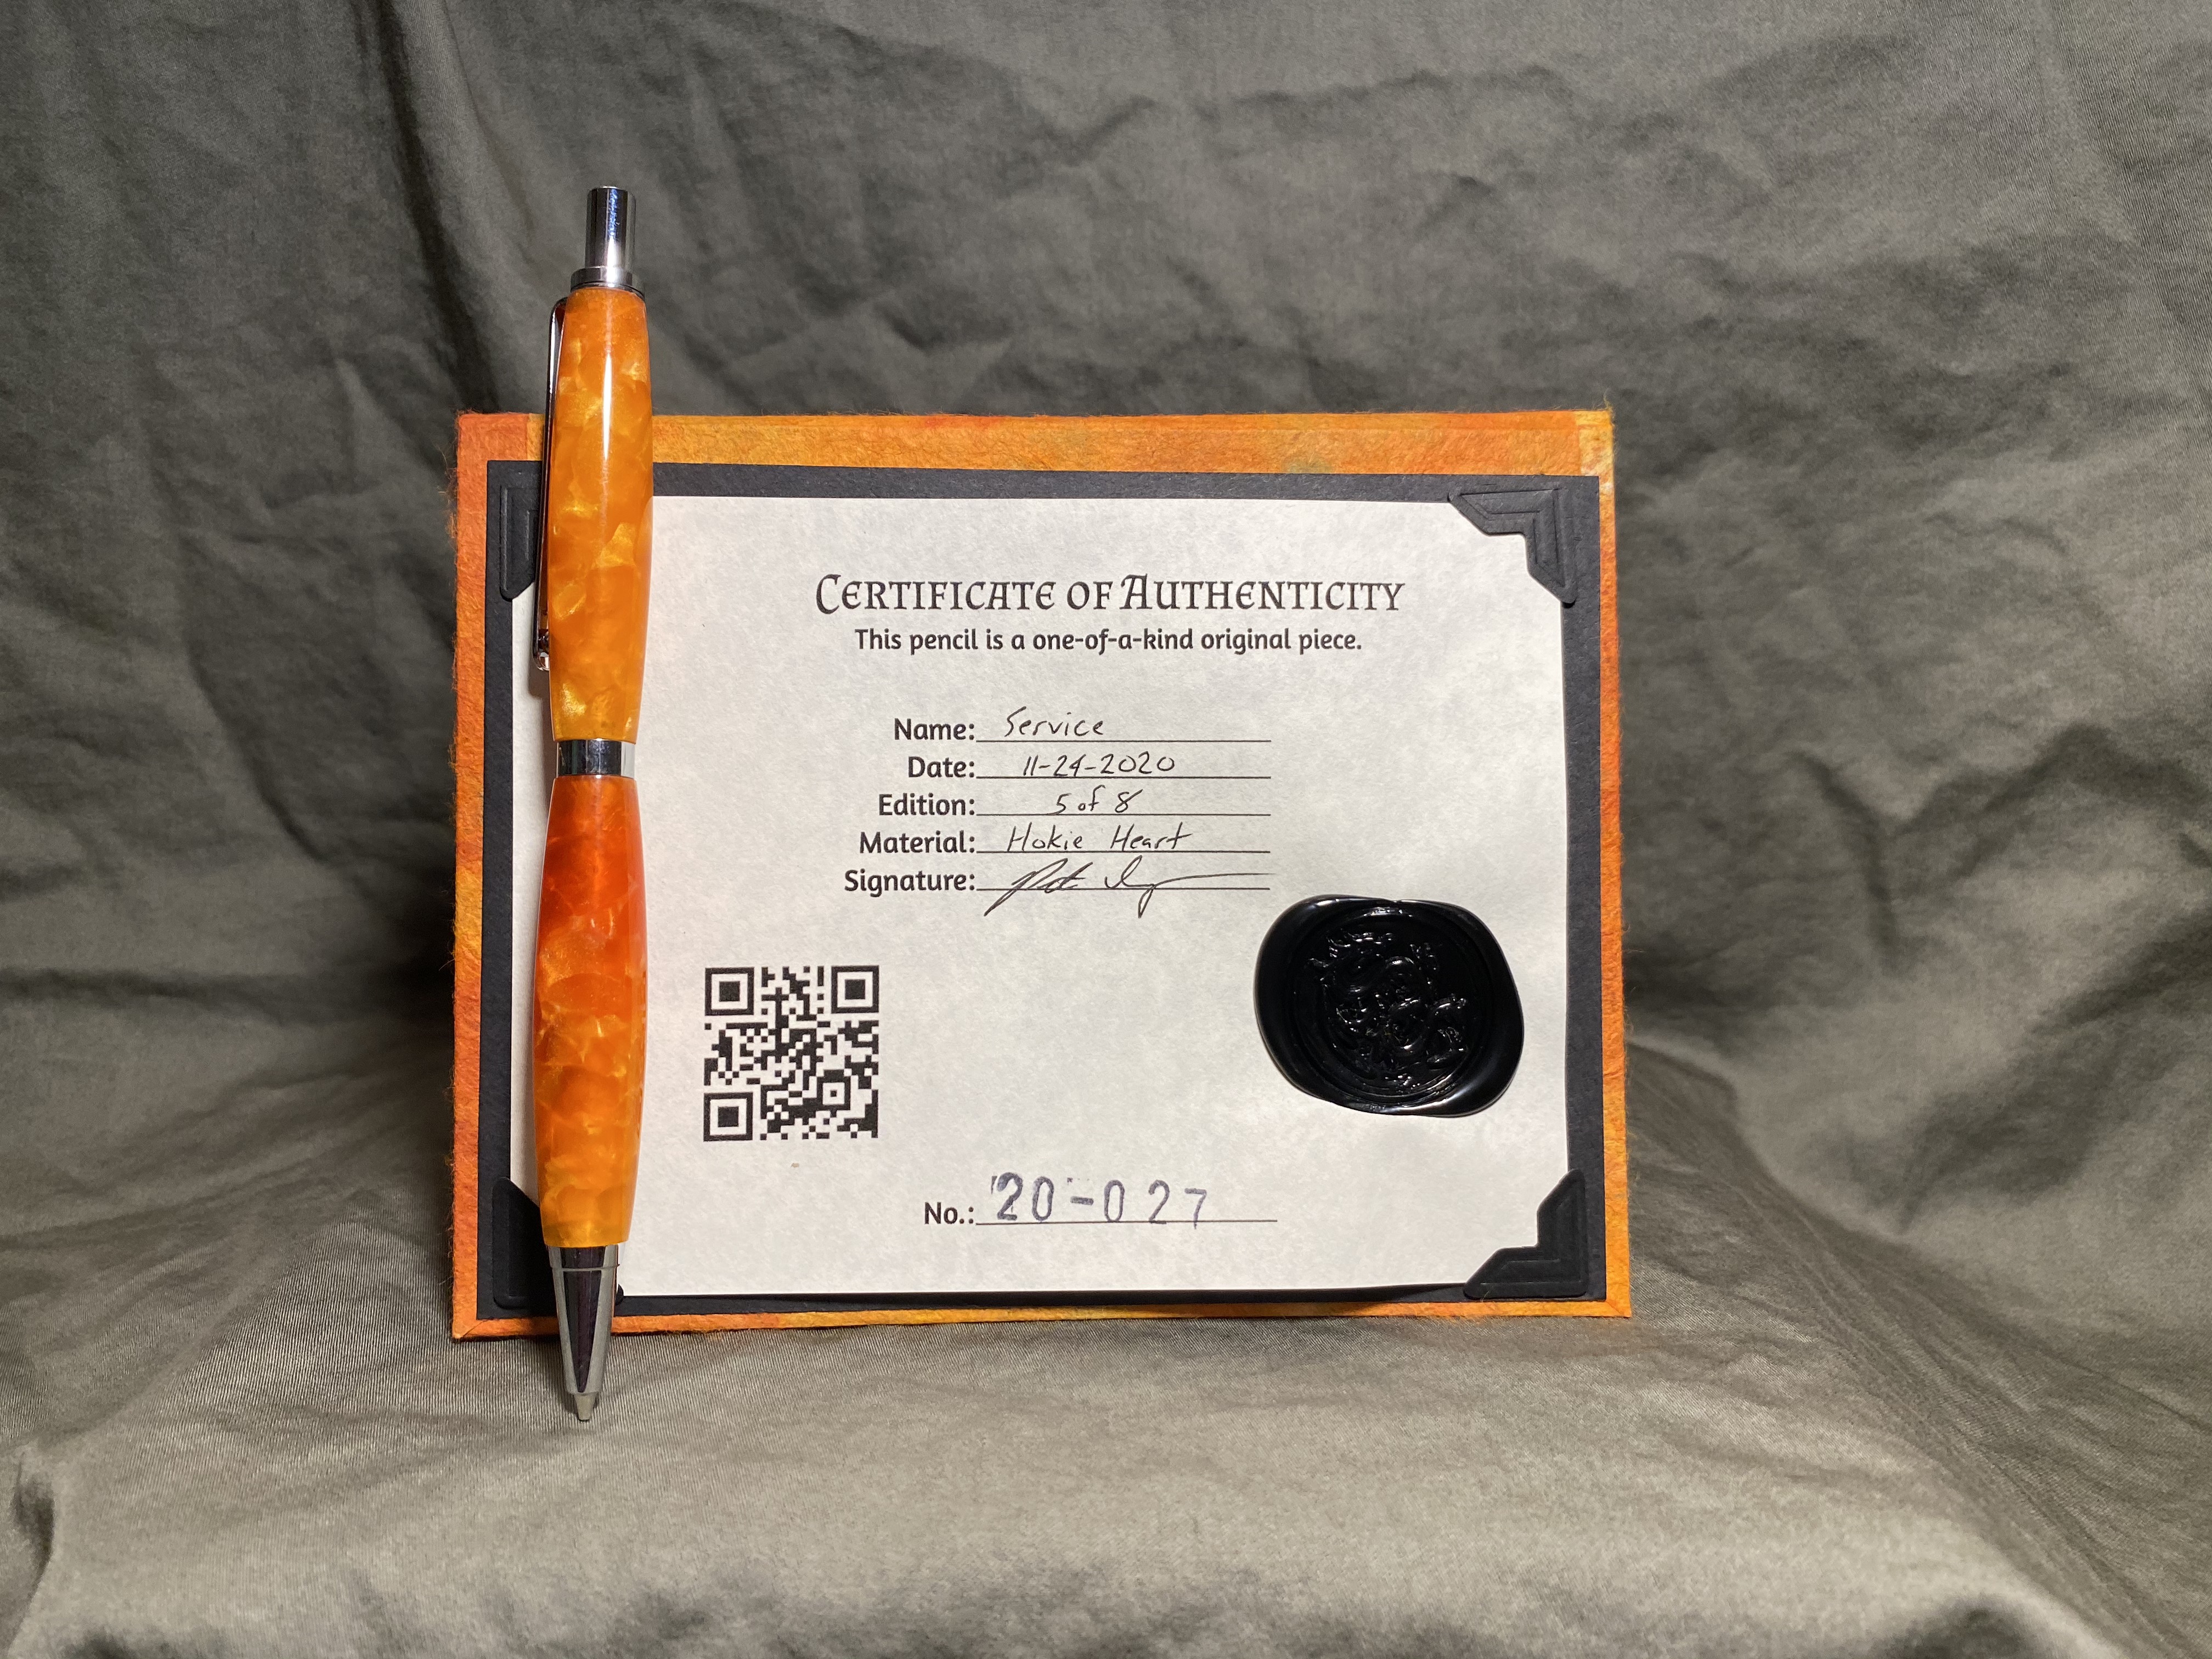 CERTIFICATE OF AUTHENTICITY
This pencil is a one-of-a-kind original piece.
Name: Service
Date: 11-24-2020
Edition: 5 of 8
Material: Hokie Heart
Signature:
No.: 20-027